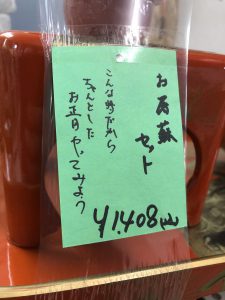 お屠蘇
セット
こんな時だから
ちゃんとした
お正月やってみよう
¥1,408